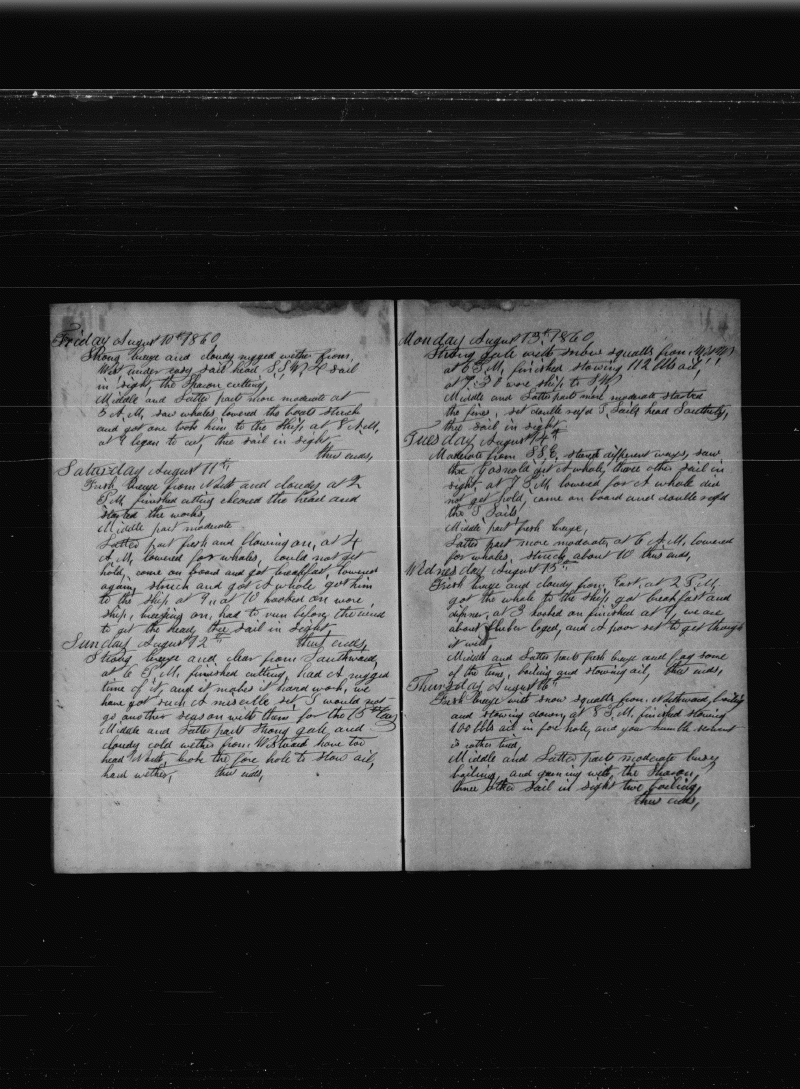 Friday August 10th 1860,
Strong breeze and cloudy rugged wether from,
West under easy sail head S S W 2 sail
in sight, the Sharon cutting,
Middle and Latter part more moderate at
5 A.M. saw whales lowered the boats struck
and got one took him to the ship, at 8 A.M,
at 9 began to cut, three sail in sight
thus ends,
Saturday August 11th
Fresh breeze from N West and cloudy at 2
P.M. finished cutting cleared the head and
started the works,
Middle part moderate
Latter part fresh and blowing on, at 4
A.M. lowered for whales, could not get
hold, come on board and got breakfast, lowered
again, struck and got A whale got him
to the ship at 9, at 10 hooked on wore
ship, breezing on, had to run before the wind
to get the head, three sail in sight,
thus ends,
Sunday August 12th
Strong breeze and clear from Southward,
at 6 P.M. finished cutting, had A rugged
time of it, and it makes it hard work, we
have got such A set, I would not
go another season with them for the 15 Lay
Middle and Latter parts Strong gale, and
cloudy cold wether from Westward hove too
head N West, broke the fore hole to stow oil,
hard wether, thus ends,
Monday August 13th 1860,
Strong gale with snow squalls from W N W
at 6 P.M, finished stowing 112 bbls oil,
at 7.30 wore ship to S W
Middle and Latter parts more moderate started
the fires, set double reefd T. Sails head Southerly,
three sail in sight
Tuesday August 14th
Moderate from S S E, steered different ways, saw
the Gosnold get A whale, three other sail in
sight, at 7 P.M. lowered for A whale did
not get hold, come on board and double reefd
the T Sails
Middle part fresh breeze,
Latter part more moderate, at 6 A.M. lowered
for whales, struck about 10 thus ends,
Wednesday August 15th
Fresh breeze and cloudy from East, at 2 P.M.
got the whale to the ship, got breakfast and
dinner, at 3 hooked on finished at 9, we are
about bluber loged, and A poor set to get through
it with,
Middle and Latter parts fresh breeze and fog some
of the time, boiling and stowing oil, thus ends,
Thursday August 16th
Fresh breeze with snow squalls from Northward, boiling
and stowing down, at 8 P.M, finished stowing
100 bbls oil in fore hole, and your humble servant
is rather tired,
Middle and Latter parts moderate busy
boiling, and gaming with, the Sharon,
three other sail in sight two boiling,
thus ends,